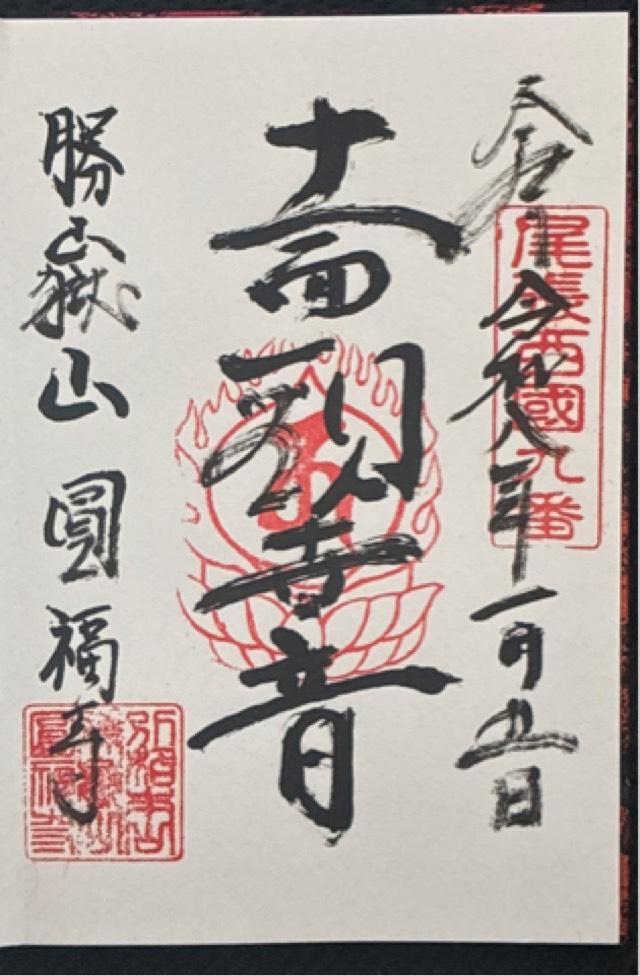 尾張西國九番
令和八年一月五日
十一面観世音
勝嶽山 圓福寺